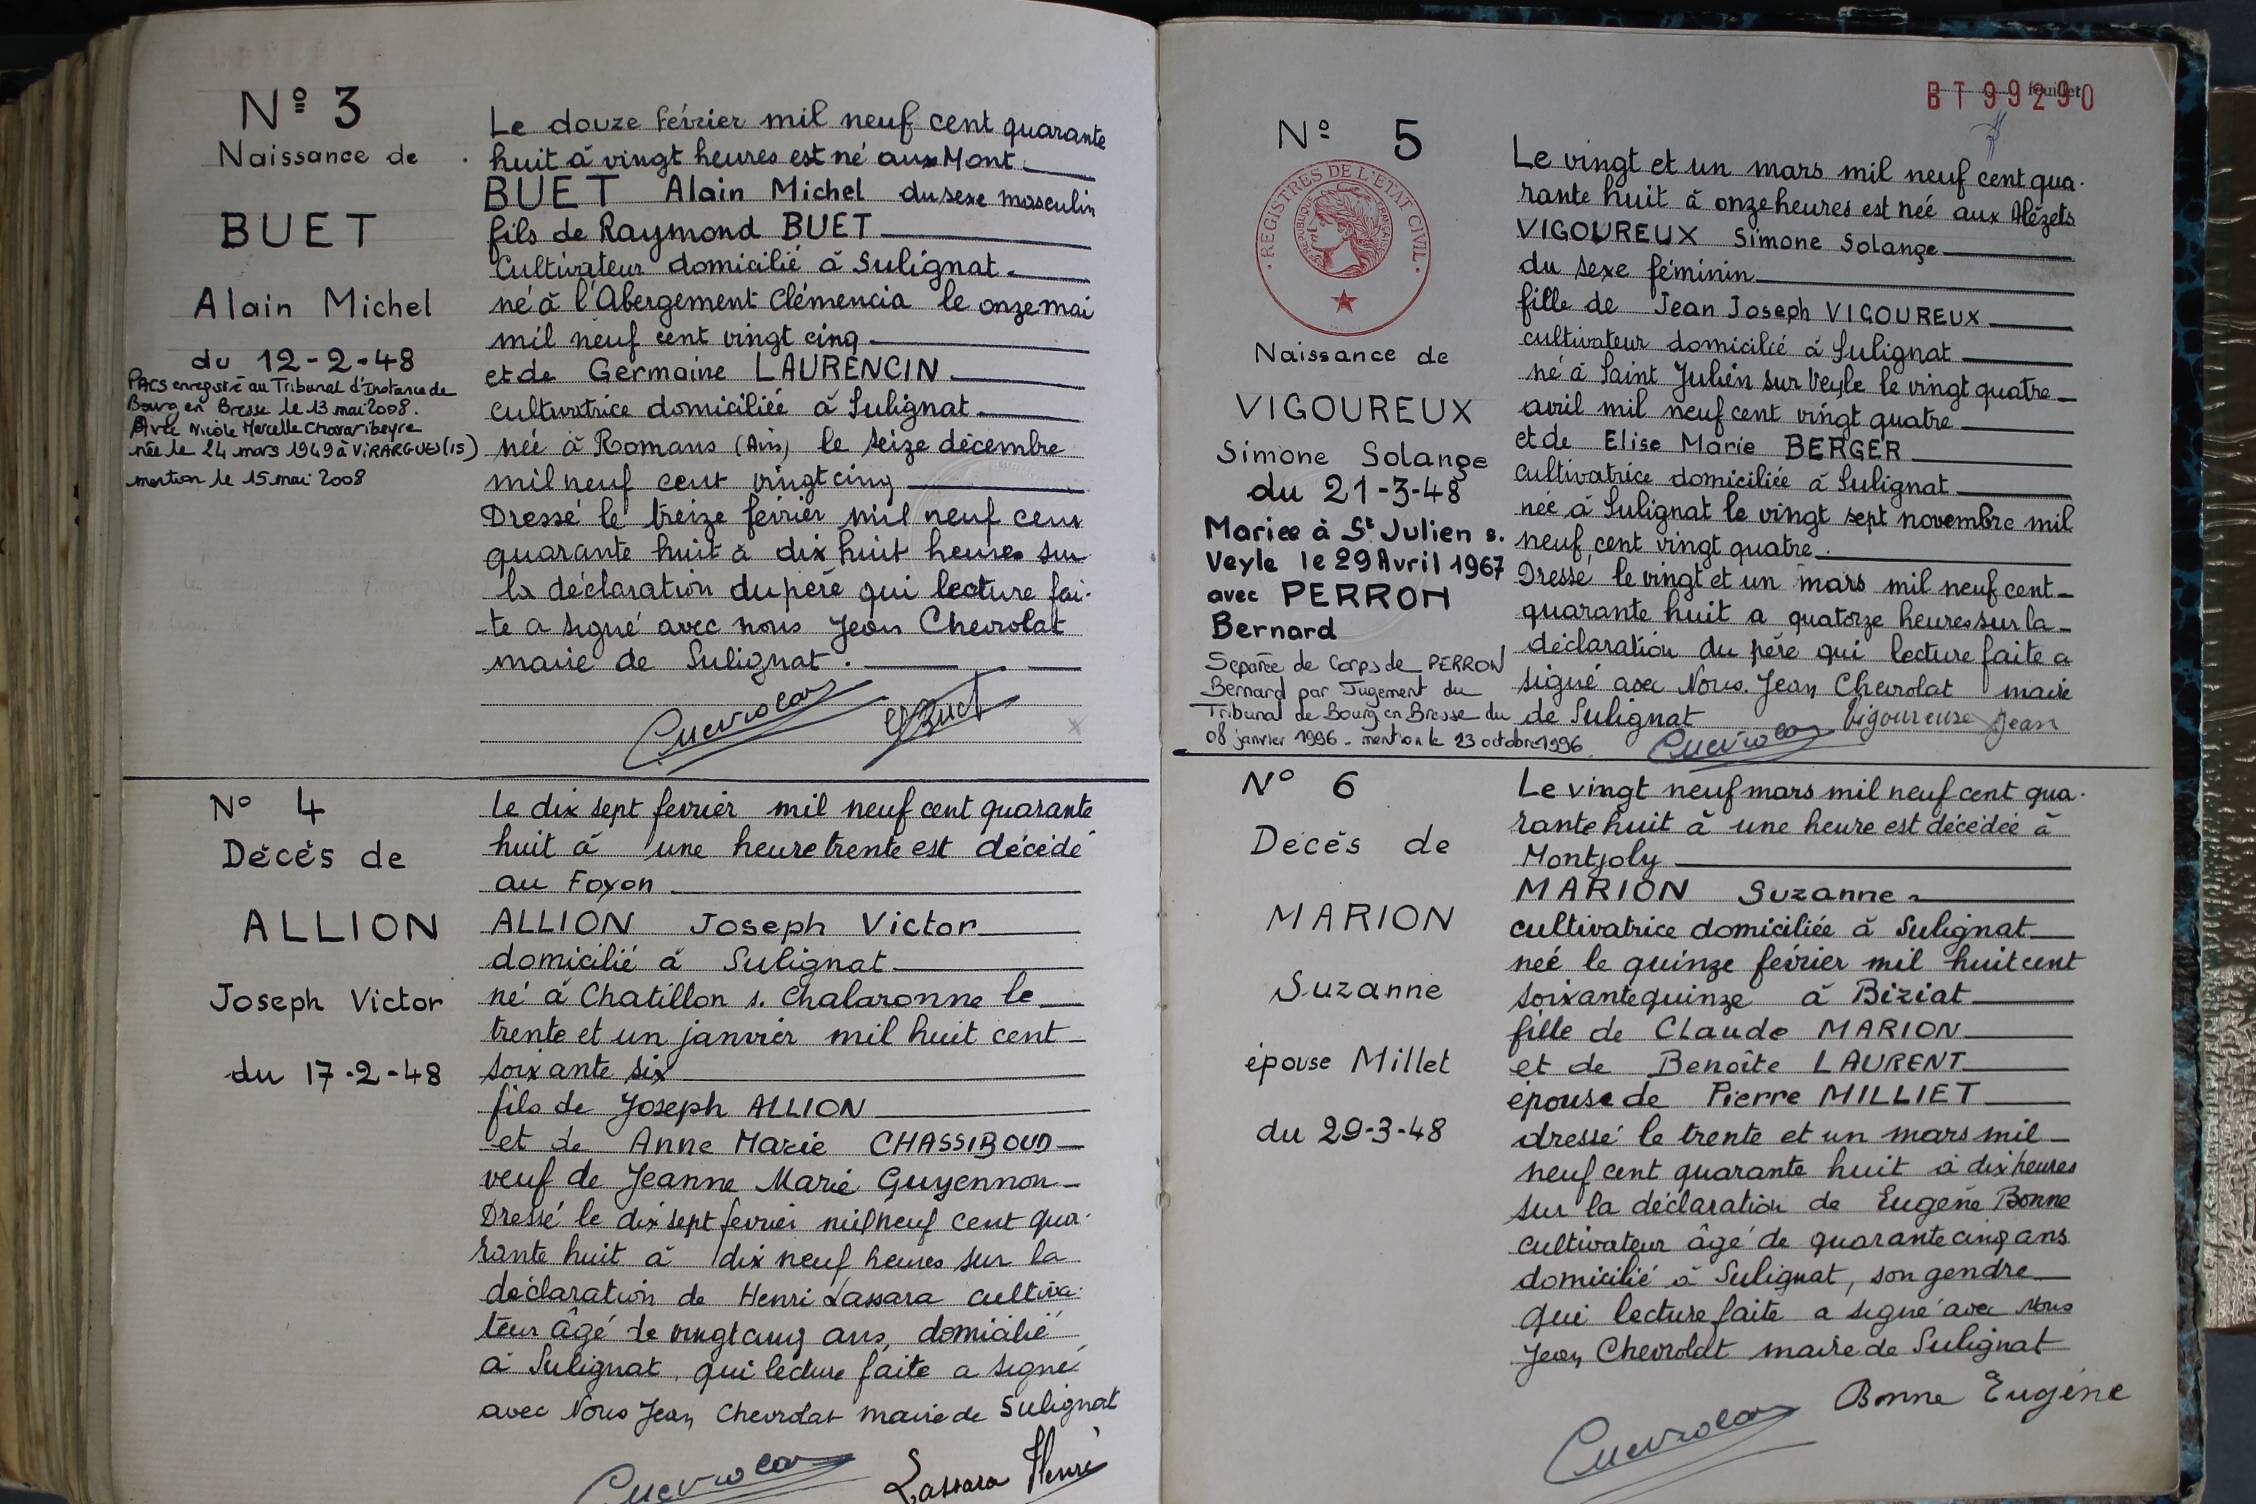 Nº 3
Naissance de
BUET
Alain Michel
du 12-2-48
PACS enregistré au Tribunal d'Instance de
Bourg en Bresse le 13 mai 2008.
Avec Nicole Marcelle Chavaribeyre
née le 24 mars 1949 à VIRARGUES (15)
mention le 15 mai 2008
Le douze février mil neuf cent quarante
huit à vingt heures est né aux Mont
BUET Alain Michel du sexe masculin
fils de Raymond BUET
Cultivateur domicilié à Sulignat
né à l'Abergement Clémencia le onze mai
mil neuf cent vingt cinq
et de Germaine LAURENCIN
cultivatrice domiciliée à Sulignat
née à Romans (Ain) le seize décembre
mil neuf cent vingt cinq
Dressé le treize février mil neuf cent
quarante huit à dix huit heures sur
la déclaration du père qui lecture fai-
-te a signé avec nous Jean Chevrolat
maire de Sulignat.
Chevrolat Buet
Nº 4
Décès de
ALLION
Joseph Victor
du 17-2-48
Le dix sept fevrier mil neuf cent quarante
huit à une heure trente est décédé
au Foyon
ALLION Joseph Victor
domicilié à Sulignat
né à Chatillon s. Chalaronne le
trente et un janvier mil huit cent
soixante six
fils de Joseph ALLION
et de Anne Marie CHASSIBOUD
veuf de Jeanne Marie Guyennon
Dressé le dix sept fevrier mil neuf cent qua-
rante huit à dix neuf heures sur la
déclaration de Henri Lassara cultiva-
teur âgé de vingt cinq ans, domicilié
à Sulignat, qui lecture faite a signé
avec Nous Jean Chevrolat maire de Sulignat
Chevrolat Lassara Henri
feuillet
BT99290
Nº 5
REGISTRES DE L'ETAT CIVIL
REPUBLIQUE FRANÇAISE
Naissance de
VIGOUREUX
Simone Solange
du 21-3-48
Mariee à St Julien s.
Veyle le 29 Avril 1967
avec PERRON
Bernard
Separée de Corps de PERRON
Bernard par Jugement du
Tribunal de Bourg en Bresse du
08 janvier 1996 - mention le 23 octobre 1996
Le vingt et un mars mil neuf cent qua-
rante huit à onze heures est née aux Alézets
VIGOUREUX Simone Solange
du sexe féminin
fille de Jean Joseph VIGOUREUX
cultivateur domicilié à Sulignat
né à Saint Julien sur Veyle le vingt quatre
avril mil neuf cent vingt quatre
et de Elise Marie BERGER
cultivatrice domiciliée à Sulignat
née à Sulignat le vingt sept novembre mil
neuf cent vingt quatre
Dressé le vingt et un mars mil neuf cent
quarante huit a quatorze heures sur la
déclaration du père qui lecture faite a
signé avec Nous. Jean Chevrolat maire
de Sulignat
Chevrolat Vigoureux Jean
Nº 6
Décès de
MARION
Suzanne
épouse Millet
du 29-3-48
Le vingt neuf mars mil neuf cent qua-
rante huit à une heure est décédée à
Montjoly
MARION Suzanne
cultivatrice domiciliée à Sulignat
née le quinze février mil huit cent
soixante quinze à Biziat
fille de Claude MARION
et de Benoîte LAURENT
épouse de Pierre MILLIET
dressé le trente et un mars mil
neuf cent quarante huit à dix heures
sur la déclaration de Eugène Bonne
cultivateur âgé de quarante cinq ans
domicilié à Sulignat, son gendre
qui lecture faite a signé avec Nous
Jean Chevrolat maire de Sulignat
Bonne Eugène
Chevrolat